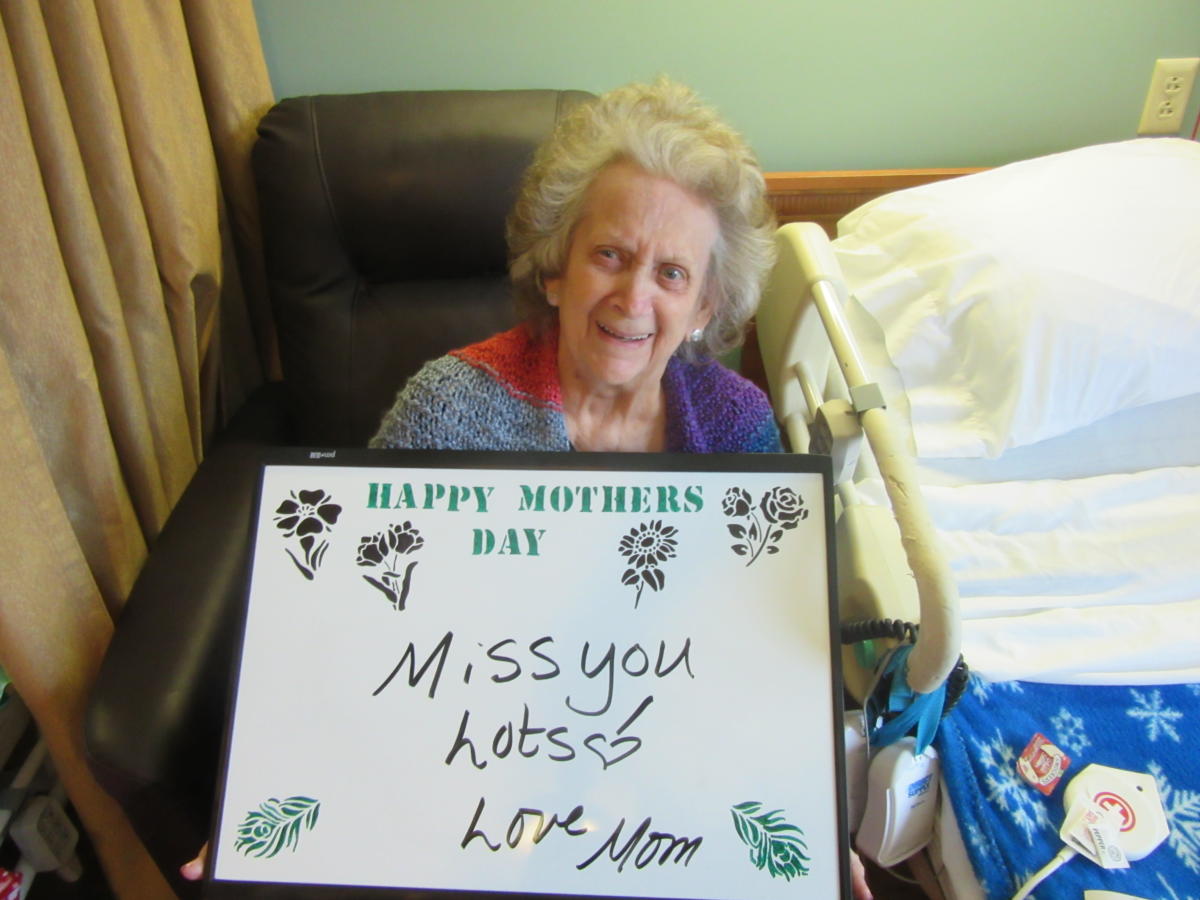 HAPPY MOTHERS
DAY
Miss you
Lots
Love Mom
PEPPER